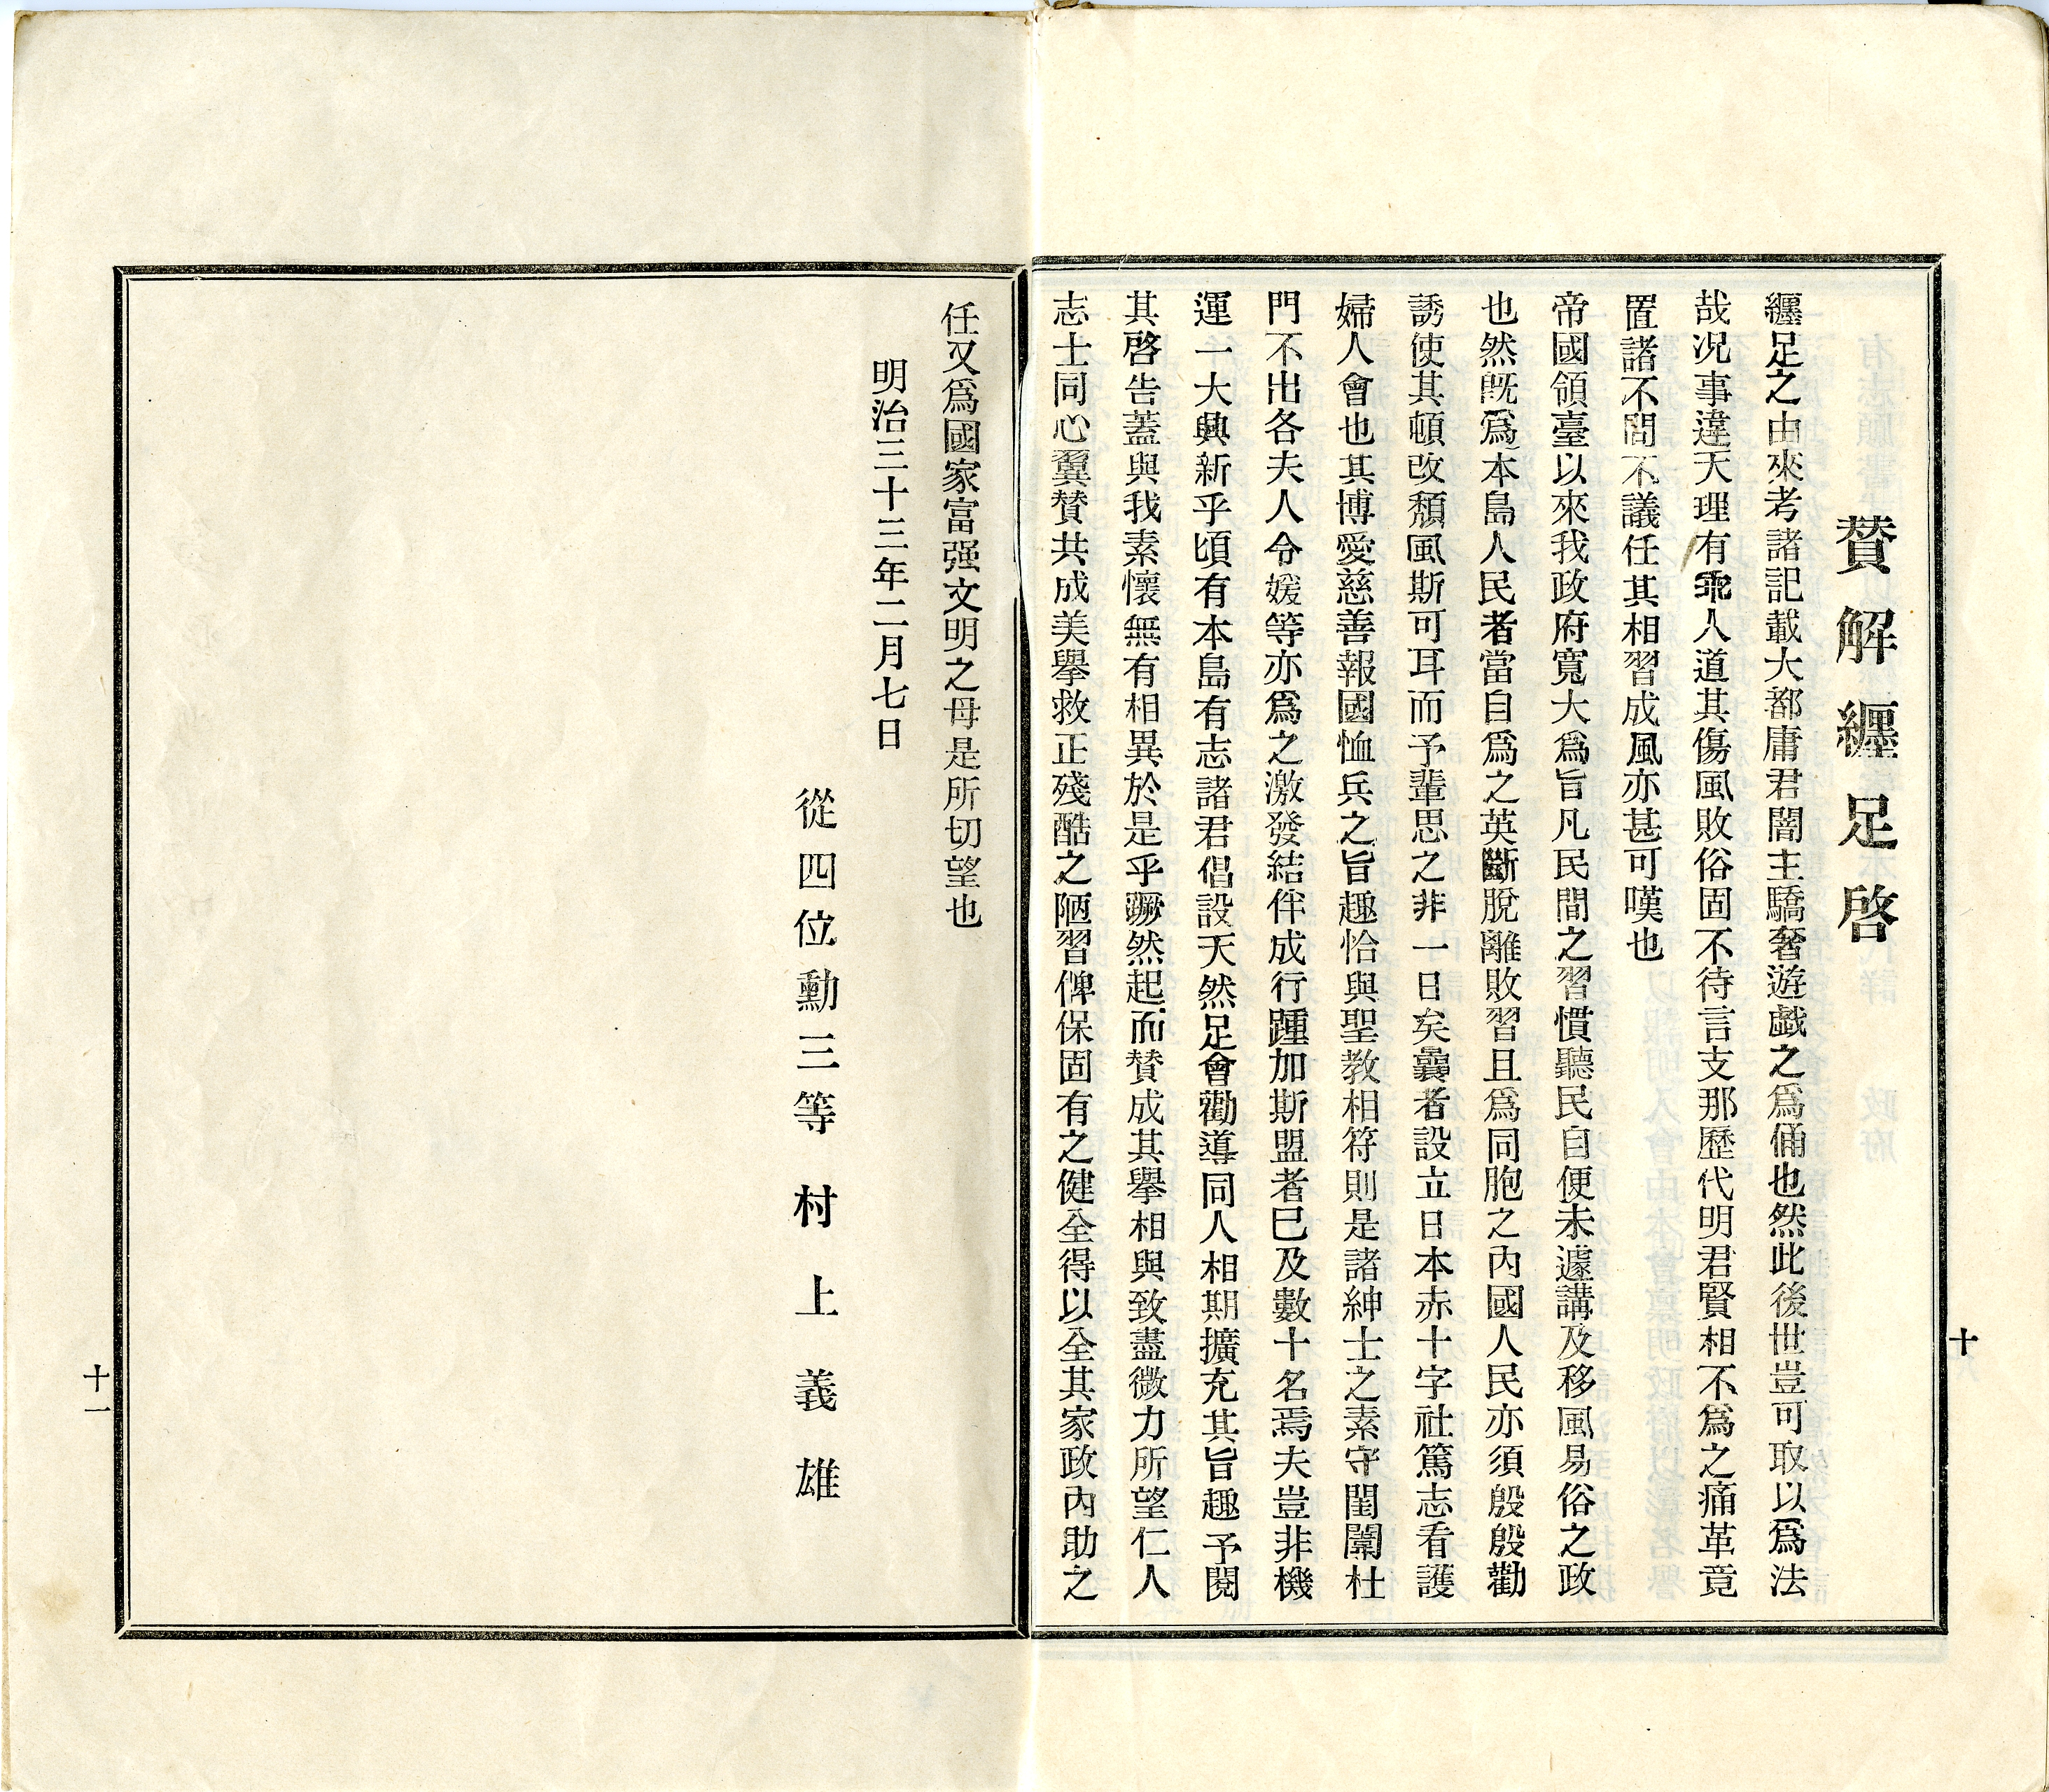 贊解纏足啓
纏足之由來考諸記載大都庸君闇主驕奢遊戯之爲俑也然此後世豈可取以爲法
哉况事違天理有乖人道其傷風敗俗固不待言支那歷代明君賢相不爲之痛革竟
置諸不問不議任其相習成風亦甚可嘆也
帝國領臺以來我政府寬大爲旨凡民間之習慣聽民自便未遽講及移風易俗之政
也然旣爲本島人民者當自爲之英斷脫離敗習且爲同胞之內國人民亦須殷殷勸
誘使其頓改頹風斯可耳而予輩思之非一日矣曩者設立日本赤十字社篤志看護
婦人會也其博愛慈善報國恤兵之旨趣恰與聖教相符則是諸紳士之素守閨闈杜
門不出各夫人令媛等亦爲之激發結伴成行踵加斯盟者已及數十名焉夫豈非機
運一大興新乎頃有本島有志諸君倡設天然足會勸導同人相期擴充其旨趣予閱
其啓告蓋與我素懷無有相異於是乎蹶然起而贊成其擧相與致盡微力所望仁人
志士同心翼贊共成美擧救正殘酷之陋習俾保固有之健全得以全其家政內助之
十
任又爲國家富强文明之母是所切望也
明治三十三年二月七日
從四位勳三等 村上義雄
十一